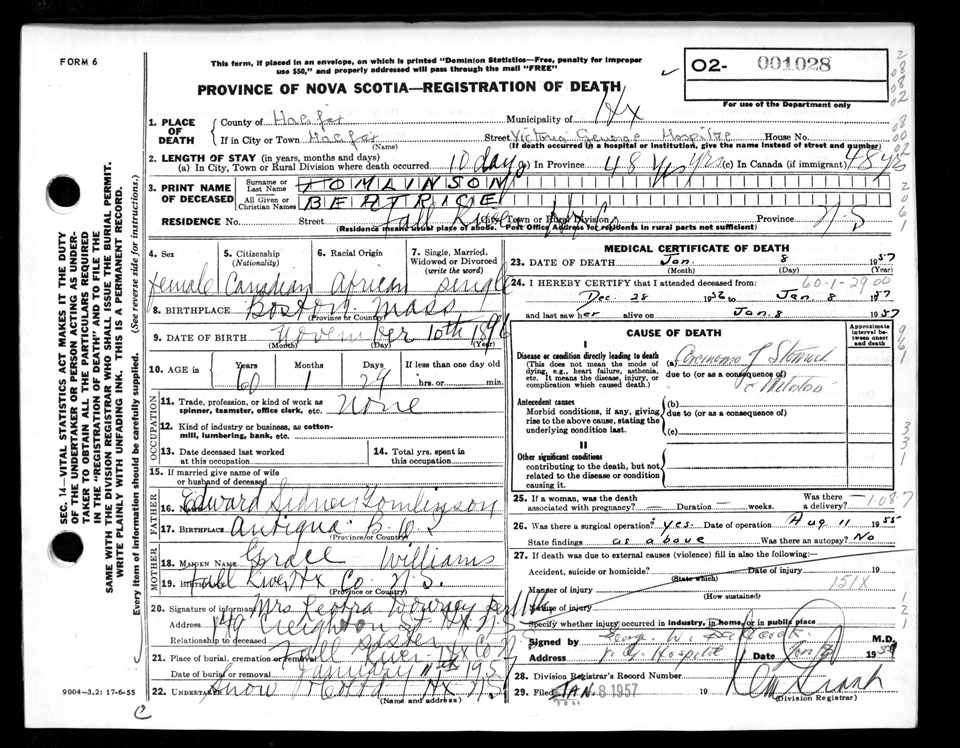 FORM 6
This form, if placed in an envelope, on which is printed "Dominion Statistics—Free, penalty for improper
use $50," and properly addressed will pass through the mail "FREE"
O2- 001028
For use of the Department only
PROVINCE OF NOVA SCOTIA—REGISTRATION OF DEATH
1. PLACE OF DEATH
County of Halifax Municipality of Hx
If in City or Town Halifax Street Victoria General Hospital House No.
(Name) (If death occurred in a hospital or institution, give the name instead of street and number)
2. LENGTH OF STAY (in years, months and days)
(a) In City, Town or Rural Division where death occurred 10 days (b) In Province 48 yrs yrs (c) In Canada (if immigrant) 48 yrs
3. PRINT NAME OF DECEASED
Surname or Last Name TOMLINSON
All Given or Christian Names BEATRICE
RESIDENCE No. Street Fall River City, Town or Rural Division Hfx Province N.S
(Residence means usual place of abode. Post Office Address for residents in rural parts not sufficient)
4. Sex 5. Citizenship (Nationality) 6. Racial Origin 7. Single, Married, Widowed or Divorced (write the word)
Female Canadian African single
8. BIRTHPLACE Boston Mass
(Province or Country)
9. DATE OF BIRTH November 10th 1896
(Month) (Day) (Year)
10. AGE in Years Months Days If less than one day old
60 1 29 hrs. or min.
OCCUPATION
11. Trade, profession, or kind of work as spinner, teamster, office clerk, etc. None
12. Kind of industry or business, as cotton-mill, lumbering, bank, etc.
13. Date deceased last worked at this occupation
14. Total yrs. spent in this occupation
15. If married give name of wife or husband of deceased
FATHER
16. Name Edward Sidney Tomlinson
17. BIRTHPLACE Antigua B.W.I
(Province or Country)
MOTHER
18. MAIDEN NAME Grace Williams
19. BIRTHPLACE Fall River Hx Co. N.S.
(Province or Country)
20. Signature of informant Mrs Leotra Downey
Address 149 Creighton St Hx N.S
Relationship to deceased Sister
21. Place of burial, cremation or removal Fall River Hx Co N.S
Date of burial or removal January 11th 1957
22. Undertaker Snow Hx N.S
(Name and address)
MEDICAL CERTIFICATE OF DEATH
23. DATE OF DEATH Jan. 8 1957
(Month) (Day) (Year)
24. I HEREBY CERTIFY that I attended deceased from: 60-1-29 00
Dec. 28 1956 to Jan. 8 1957
and last saw her alive on Jan. 8 1957
CAUSE OF DEATH
Approximate interval between onset and death
I
Disease or condition directly leading to death (This does not mean the mode of dying, e.g., heart failure, asthenia, etc. It means the disease, injury, or complication which caused death.)
(a) Carcinoma of Stomach
due to (or as a consequence of)
Antecedent causes
Morbid conditions, if any, giving rise to the above cause, stating the underlying condition last.
(b)
due to (or as a consequence of)
(c)
II
Other significant conditions contributing to the death, but not related to the disease or condition causing it.
25. If a woman, was the death associated with pregnancy? — Duration — weeks. Was there a delivery? —
1087
26. Was there a surgical operation? Yes. Date of operation Aug 11 1955
State findings as above Was there an autopsy? No
27. If death was due to external causes (violence) fill in also the following:—
Accident, suicide or homicide? Date of injury 19
(State which)
Manner of injury 151X
(How sustained)
Nature of injury
Specify whether injury occurred in industry, in home, or in public place
Signed by M.D.
Address V. G. Hospital Date Jan 1957
28. Division Registrar's Record Number
29. Filed JAN 8 1957 19
(Division Registrar)
SEC. 14—VITAL STATISTICS ACT MAKES IT THE DUTY
OF THE UNDERTAKER OR PERSON ACTING AS UNDER-
TAKER TO OBTAIN ALL THE PARTICULARS REQUIRED
IN THE "REGISTRATION OF DEATH" AND TO FILE THE
SAME WITH THE DIVISION REGISTRAR WHO SHALL ISSUE THE BURIAL PERMIT.
WRITE PLAINLY WITH UNFADING INK. THIS IS A PERMANENT RECORD.
Every item of information should be carefully supplied. (See reverse side for instructions.)
9004-3.2: 17-6-55
C